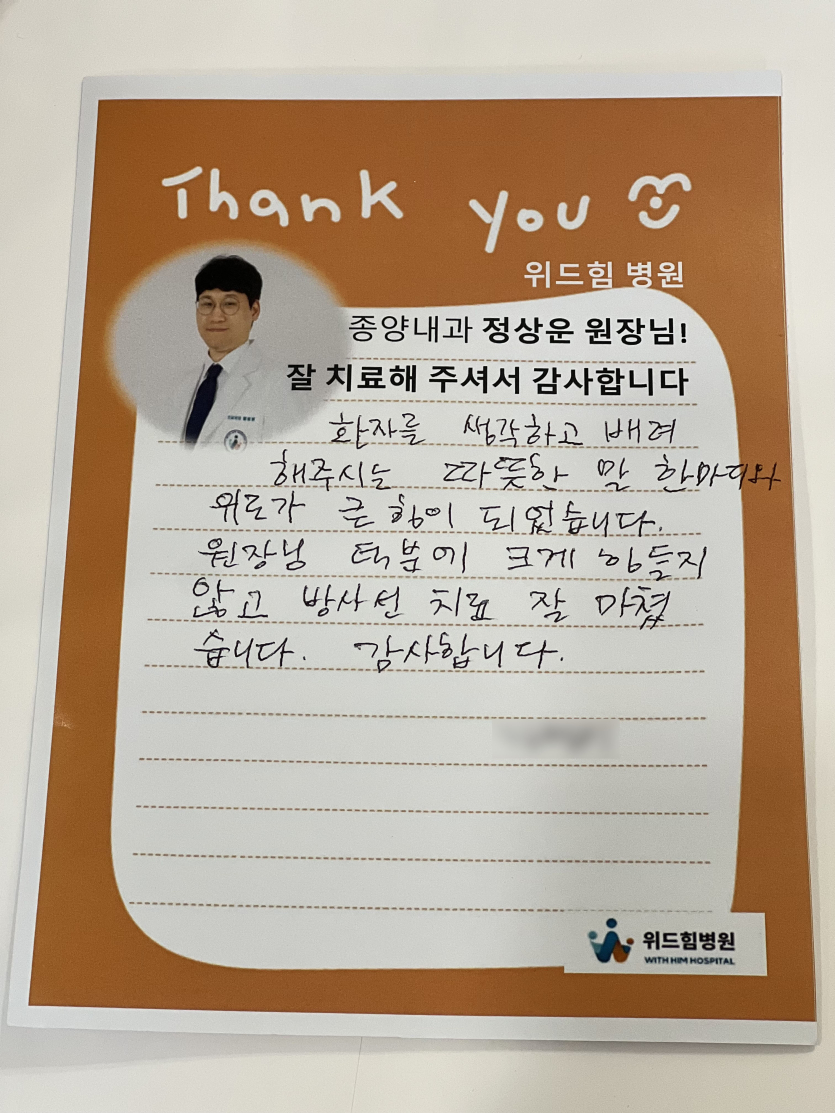 Thank you
위드힘 병원
종양내과 정상운 원장님!
잘 치료해 주셔서 감사합니다
환자를 생각하고 배려
해주시는 따뜻한 말 한마디와
위로가 큰 힘이 되었습니다.
원장님 덕분에 크게 힘들지
않고 방사선 치료 잘 마쳤
습니다. 감사합니다.
위드힘병원
WITH HIM HOSPITAL